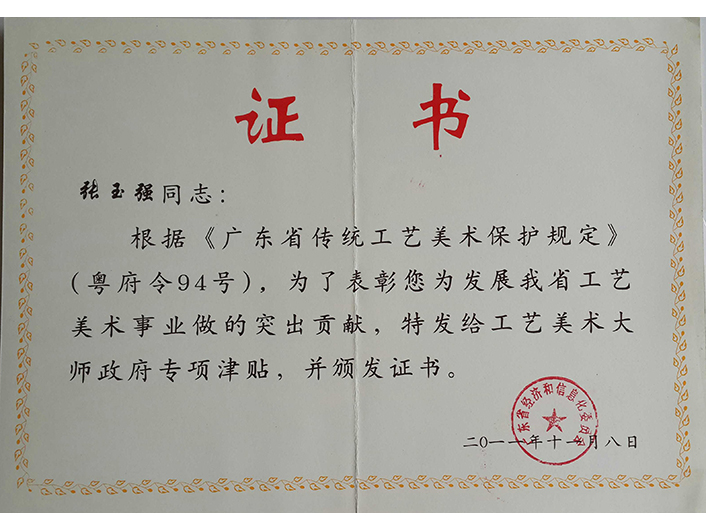 证书
张玉强同志：
根据《广东省传统工艺美术保护规定》
(粤府令94号)，为了表彰您为发展我省工艺
美术事业做的突出贡献，特发给工艺美术大
师政府专项津贴，并颁发证书。
广东省经济和信息化委员会
二〇一一年十一月八日